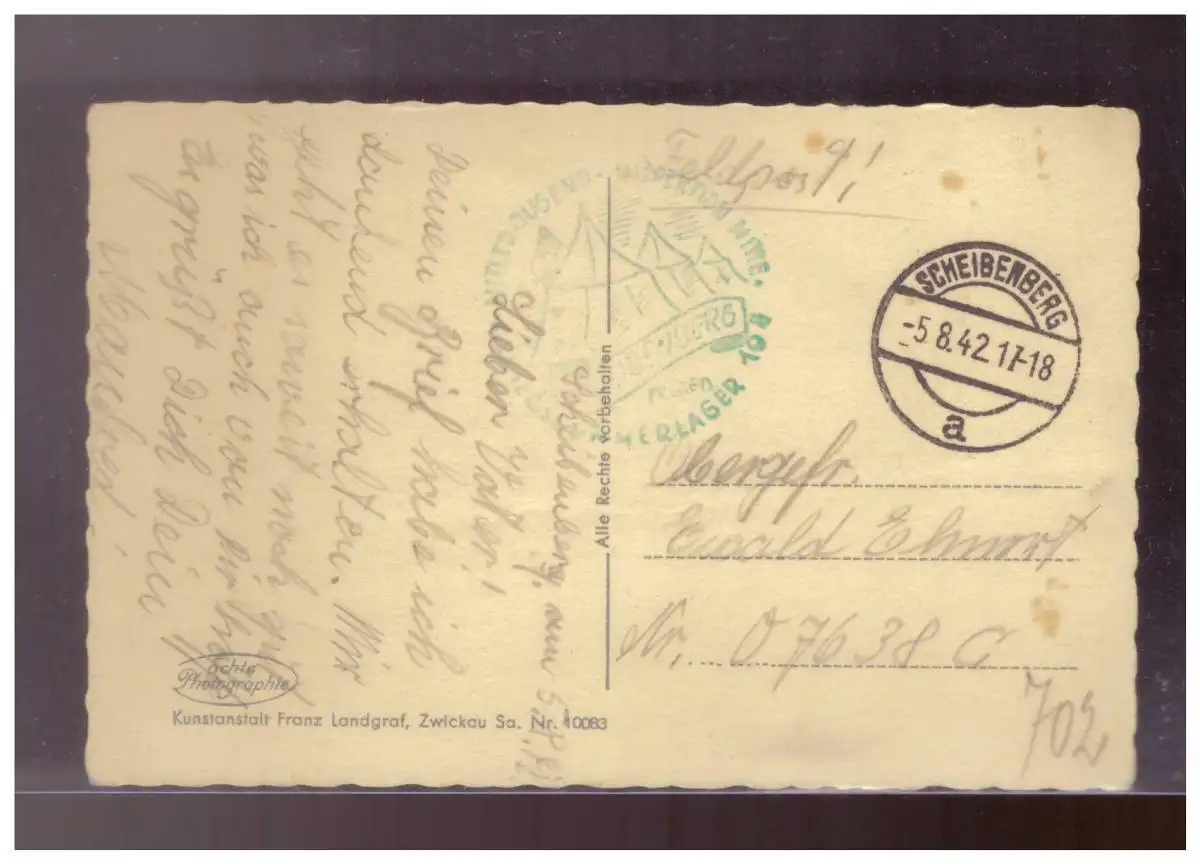 Feldpost!
SCHEIBENBERG
-5.8.42.17-18
a
Obergefr.
Ewald Ehnort
Nr. 07638 C
702
Alle Rechte vorbehalten
HITLERJUGEND
SOMMERLAGER 194
Scheibenberg, am 5.8.42.
Lieber Vater!
Deinen Brief habe ich
dankend erhalten. Mir
geht es soweit noch gut
was ich auch von Dir hoffe
Es grüßt Dich Dein
Manfred
Echte
Photographie
Kunstanstalt Franz Landgraf, Zwickau Sa. Nr. 10083